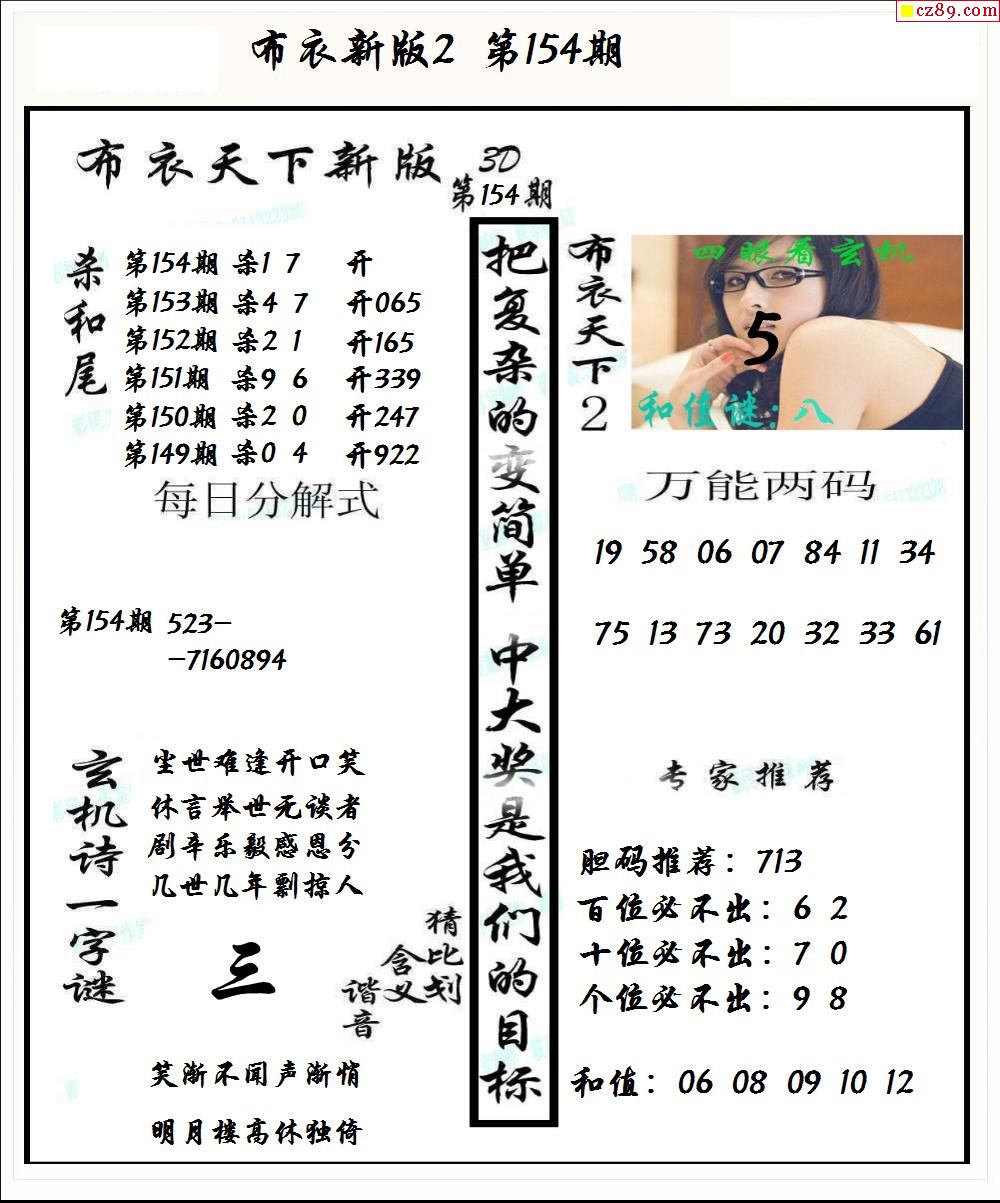 cz89.com
布衣新版2 第154期
布衣天下新版 3D
第154期
杀和尾
第154期 杀1 7 开
第153期 杀4 7 开065
第152期 杀2 1 开165
第151期 杀9 6 开339
第150期 杀2 0 开247
第149期 杀0 4 开922
每日分解式
第154期 523-
-7160894
玄机诗一字谜
尘世难逢开口笑
休言举世无谈者
剧辛乐毅感恩分
几世几年剽掠人
三
猜比划
含义
谐音
笑渐不闻声渐悄
明月楼高休独倚
把复杂的变简单 中大奖是我们的目标
布衣天下2
四眼看玄机
5
和值谜:八
万能两码
19 58 06 07 84 11 34
75 13 73 20 32 33 61
专家推荐
胆码推荐：713
百位必不出：6 2
十位必不出：7 0
个位必不出：9 8
和值：06 08 09 10 12